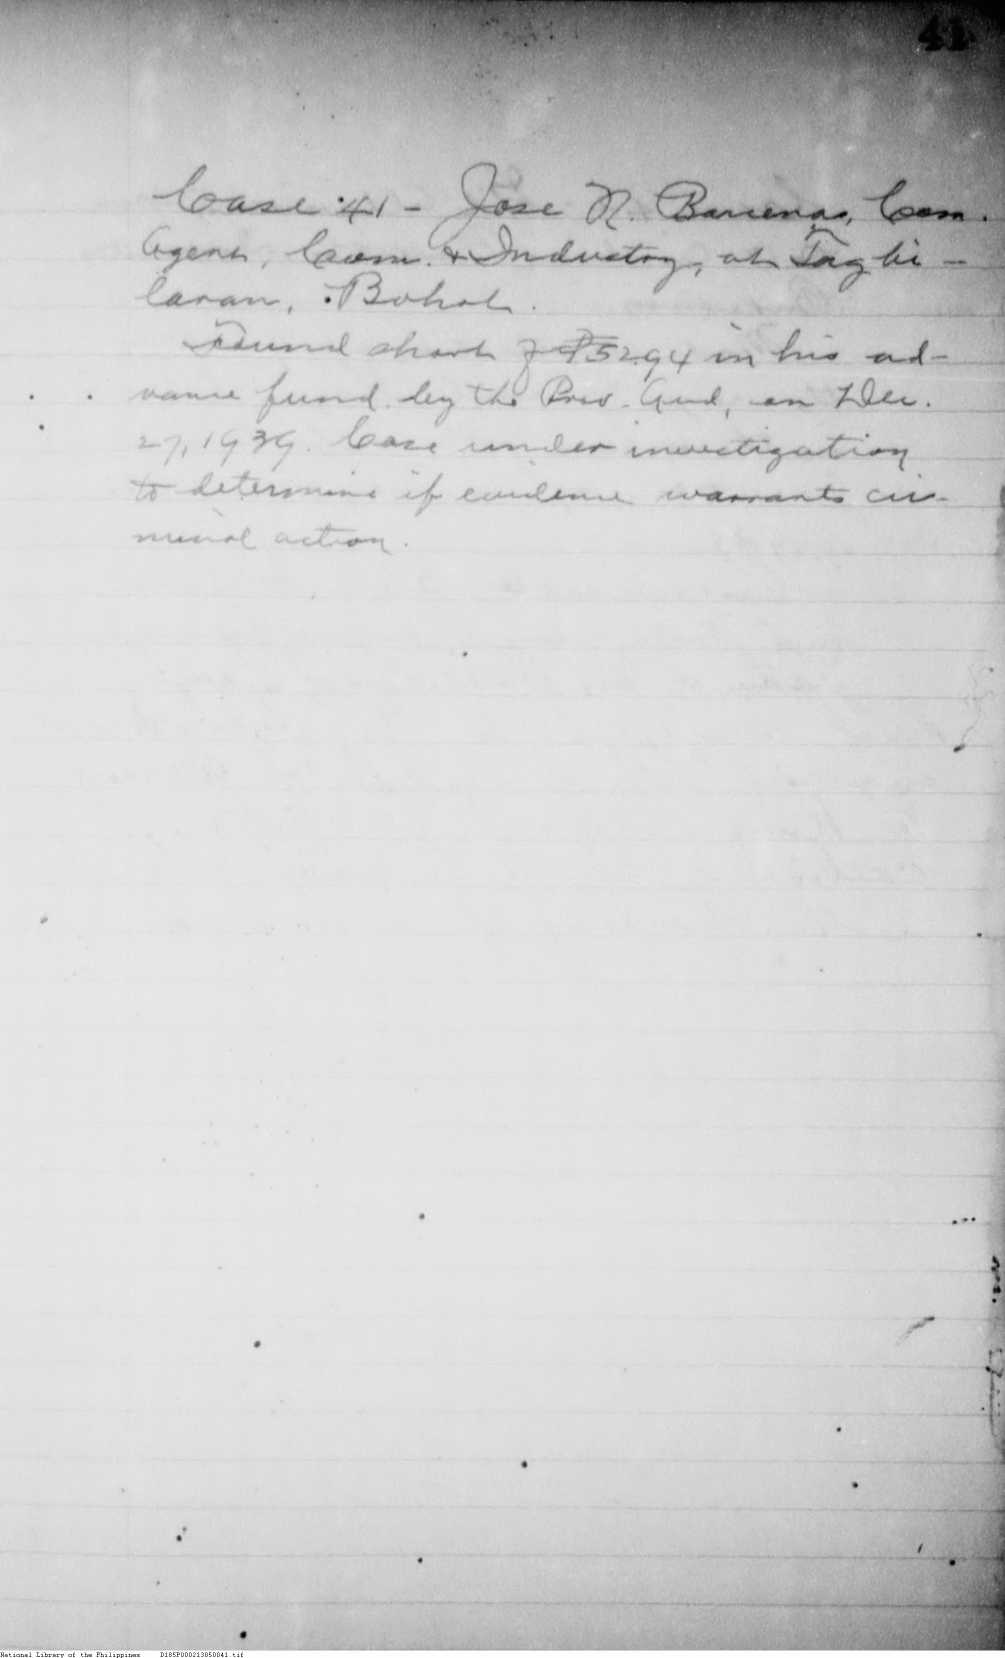 41
Case 41 - Jose N. Barcenas, Com.
Agent, Com. & Industry, at Tagbi-
laran, Bohol.
Found short of ₱52.94 in his ad-
vance fund by the Prov. Aud, on Dec.
27, 1939. Case under investigation
to determine if evidence warrants cri-
minal action.
National Library of the Philippines D185P000213850041.tif